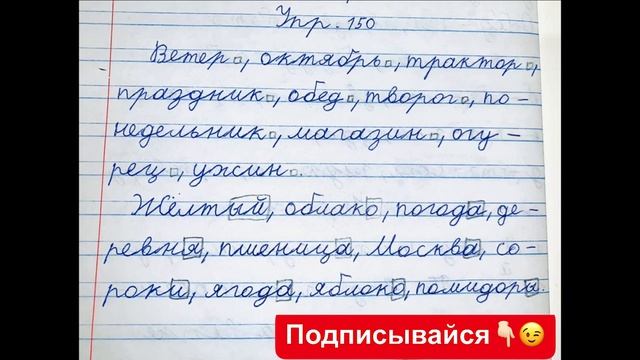 Упр. 150
Ветер, октябрь, трактор,
праздник, обед, творог, по-
недельник, магазин, огу-
рец, ужин.
Жёлтый, облако, погода, де-
ревня, пшеница, Москва, со-
роки, ягода, яблоко, помидоры.
Подписывайся 👇😉